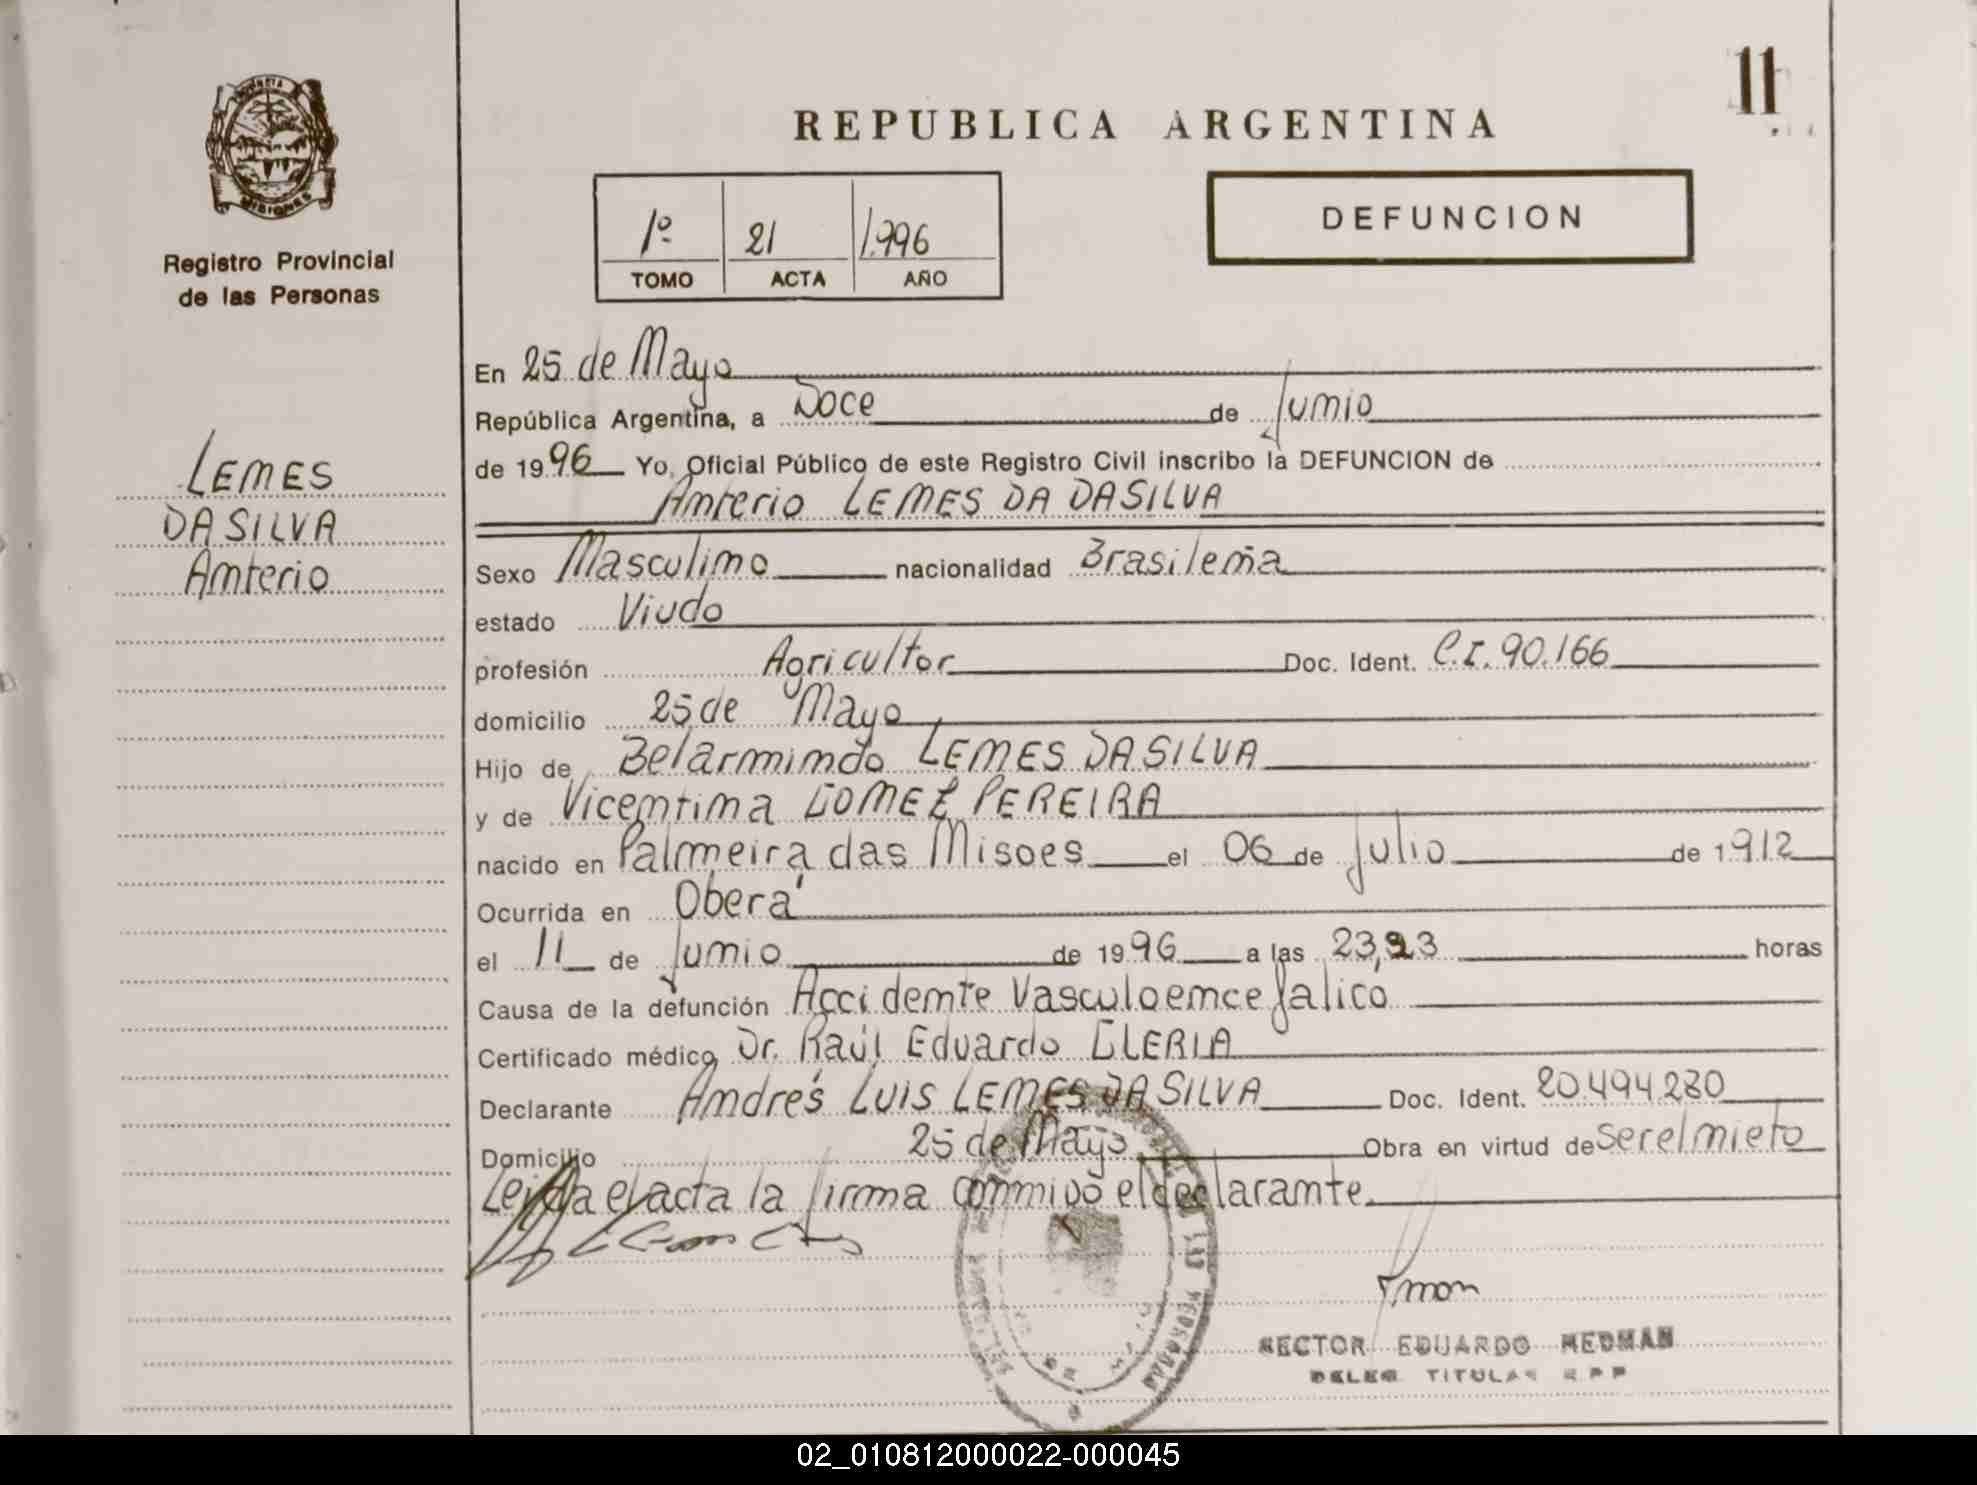 11
REPUBLICA ARGENTINA
PROVINCIA
MISIONES
Registro Provincial
de las Personas
1º 21 1.996
TOMO ACTA AÑO
DEFUNCION
LEMES
DA SILVA
Anterio
En 25 de Mayo
República Argentina, a Doce de Junio
de 1996 Yo, Oficial Público de este Registro Civil inscribo la DEFUNCION de
Anterio LEMES DA DASILVA
Sexo Masculino nacionalidad Brasileña
estado Viudo
profesión Agricultor Doc. Ident. C.I. 90.166
domicilio 25 de Mayo
Hijo de Belarmindo LEMES DA SILVA
y de Vicentina GOMEZ PEREIRA
nacido en Palmeira das Misoes el 06 de Julio de 1912
Ocurrida en Oberá
el 11 de Junio de 1996 a las 23,23 horas
Causa de la defunción Accidente Vasculoencefalico
Certificado médico Dr. Raúl Eduardo GLERIA
Declarante Andrés LUIS LEMES DA SILVA Doc. Ident. 20.494.230
Domicilio 25 de Mayo Obra en virtud de Ser el nieto
Leida el acta la firma conmigo el declarante.
HECTOR EDUARDO NEDMAN
DELEG. TITULAR R P P
02_010812000022-000045